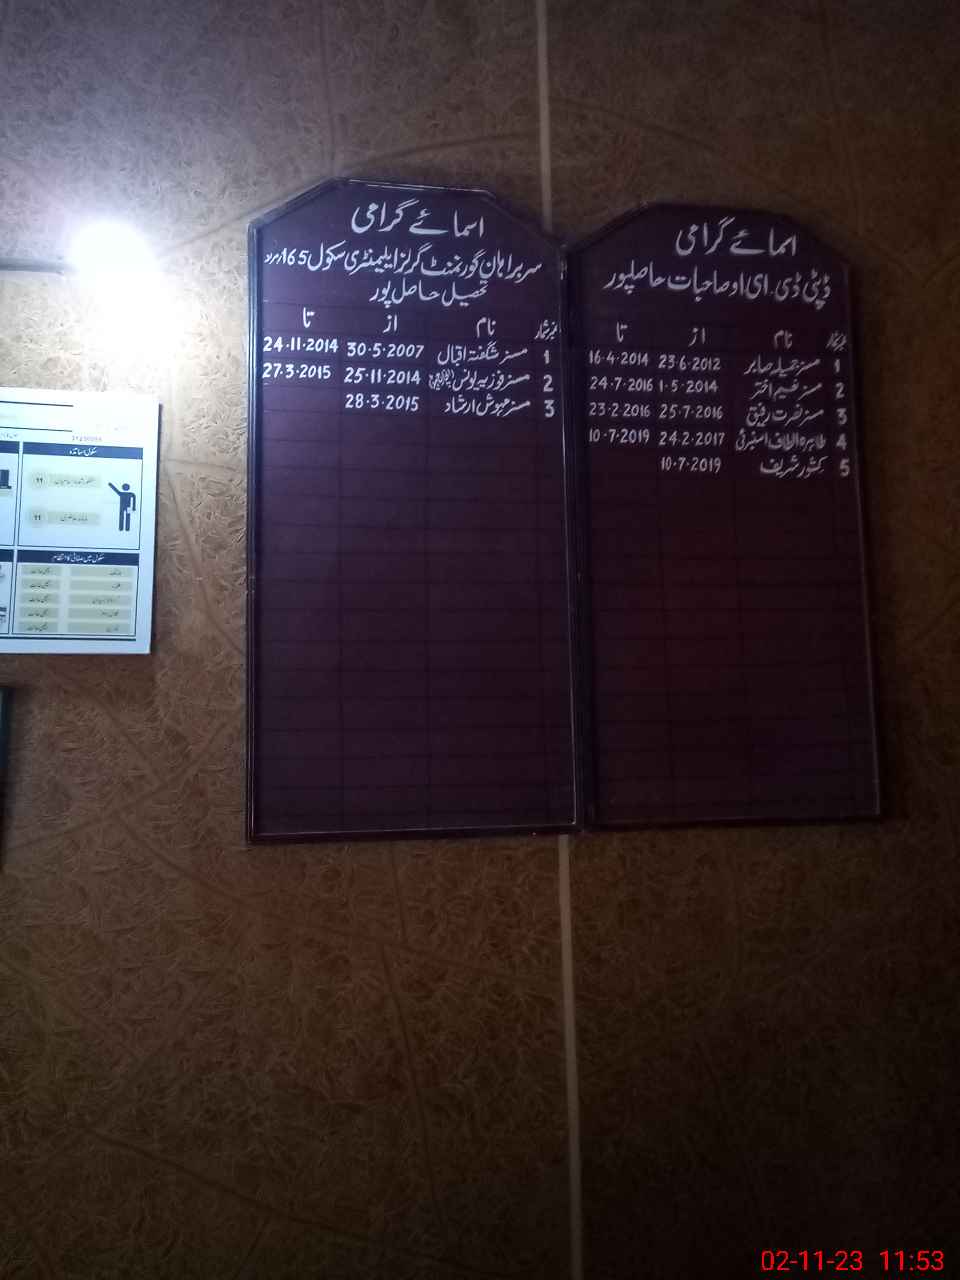 اسمائے گرامی
سربراہان گورنمنٹ گرلز ایلیمنٹری سکول 165/مراد
تحصیل حاصل پور
نمبر شمار نام از تا
1 مسز شگفتہ اقبال 30.5.2007 24.11.2014
2 مسز فوزیہ یونس 25.11.2014 27.3.2015
3 مسز مہوش ارشاد 28.3.2015
اسمائے گرامی
ڈپٹی ڈی.ای.او صاحبات حاصلپور
نمبر شمار نام از تا
1 مسز جمیلہ صابر 23.6.2012 16.4.2014
2 مسز نسیم اختر 1.5.2014 24.7.2016
3 مسز نصرت رفیق 25.7.2016 23.2.2016
4 طاہرہ الطاف 24.2.2017 10.7.2019
5 کشور شریف 10.7.2019
سکول اساتذہ
11
11
سکول میں صفائی کا انتظام
02-11-23 11:53